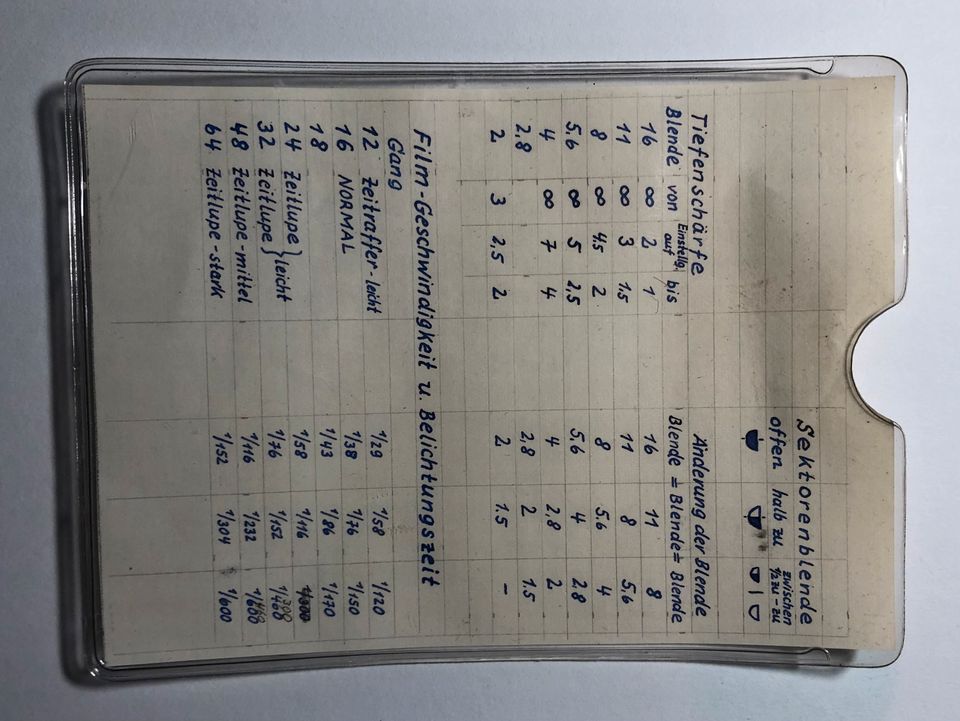 Sektorenblende
offen halb zu zwischen ½ zu - zu
Tiefenschärfe Änderung der Blende
Blende von Einstellg. auf bis Blende = Blende = Blende
16 ∞ 2 1 16 11 8
11 ∞ 3 1.5 11 8 5,6
8 ∞ 4,5 2 8 5,6 4
5,6 ∞ 5 2,5 5,6 4 2,8
4 ∞ 7 4 4 2,8 2
2,8 2,8 2 1.5
2 3 2,5 2 2 1.5 -
Film-Geschwindigkeit u. Belichtungszeit
Gang
12 Zeitraffer-leicht 1/29 1/58 1/120
16 NORMAL 1/38 1/76 1/150
18 1/43 1/86 1/170
24 Zeitlupe } leicht 1/58 1/116
32 Zeitlupe 1/76 1/152
48 Zeitlupe-mittel 1/116 1/232
64 Zeitlupe-stark 1/152 1/304 1/600